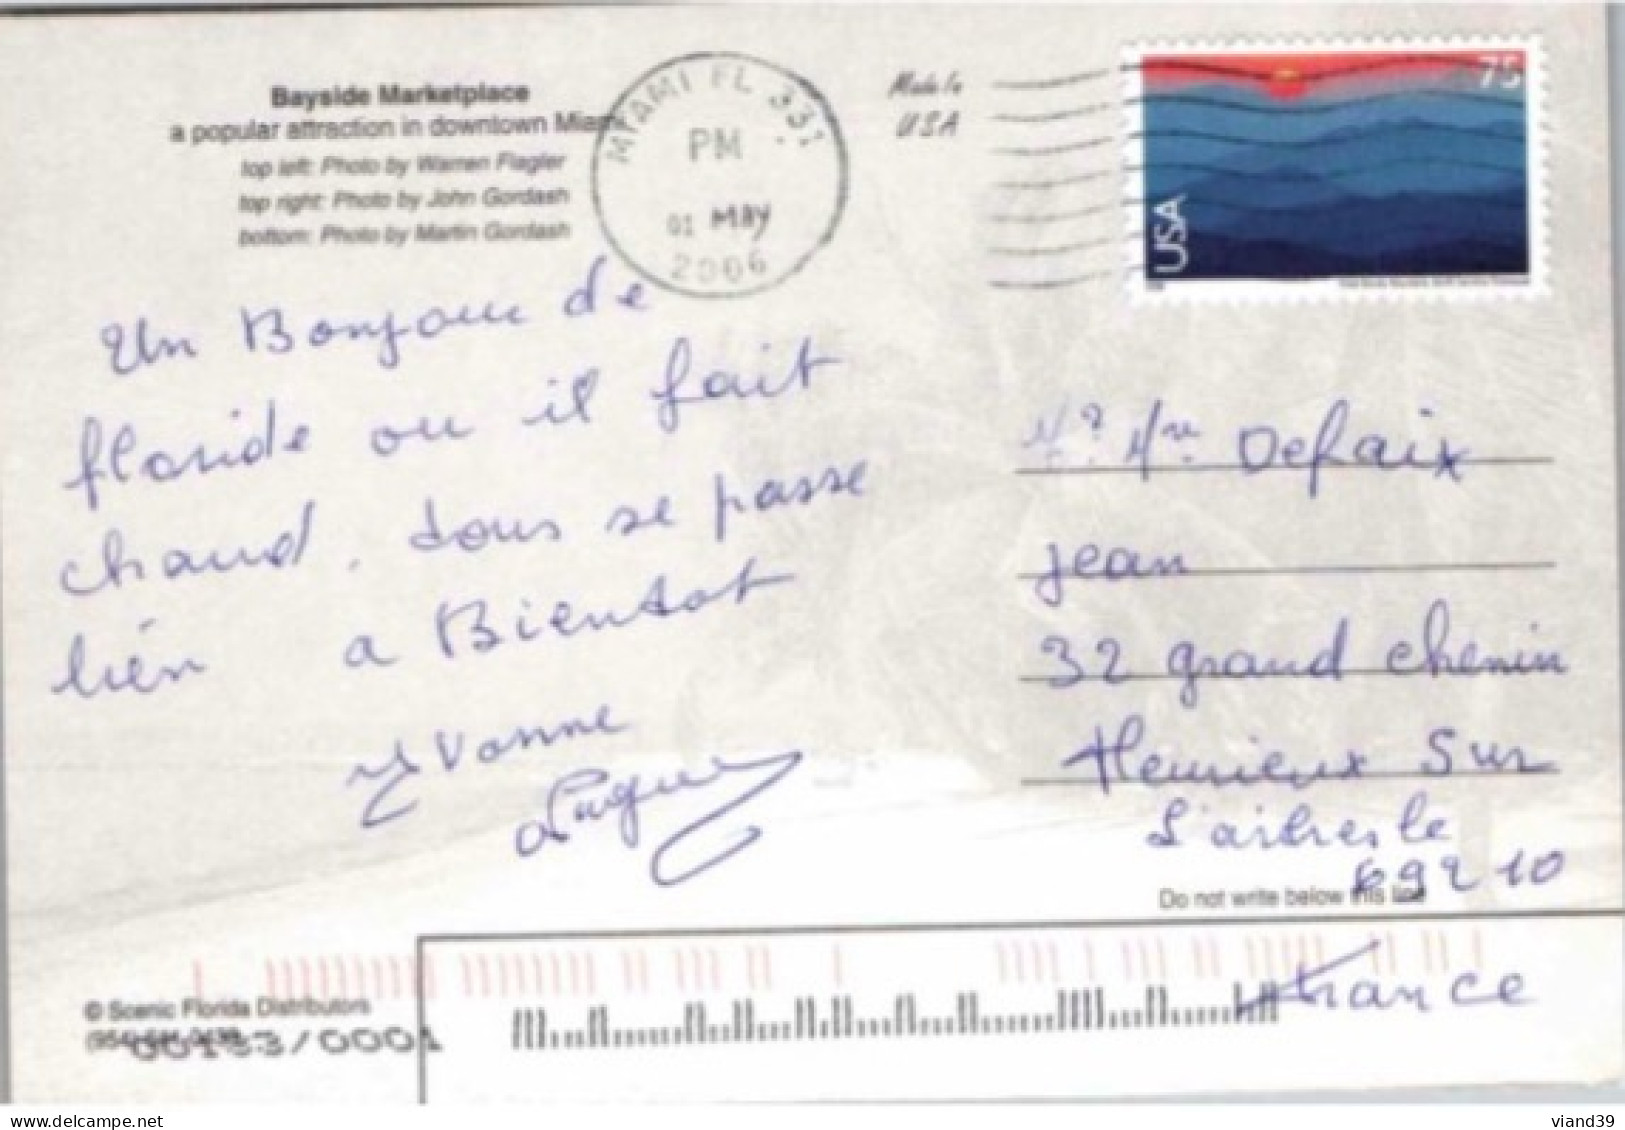 Bayside Marketplace
a popular attraction in downtown Miami
top left: Photo by Warren Flagler
top right: Photo by John Gordash
bottom: Photo by Martin Gordash
MIAMI FL 331
PM
01 MAY
2006
Made in
USA
75
USA
Un Bonjour de
floride ou il fait
chaud, tous se passe
bien a Bientot
Yvonne
Mr Mme Defaix
jean
32 grand chemin
fleurieux Sur
L'arbresle
69210
Do not write below this line
france
© Scenic Florida Distributors
00133/0001
viand39